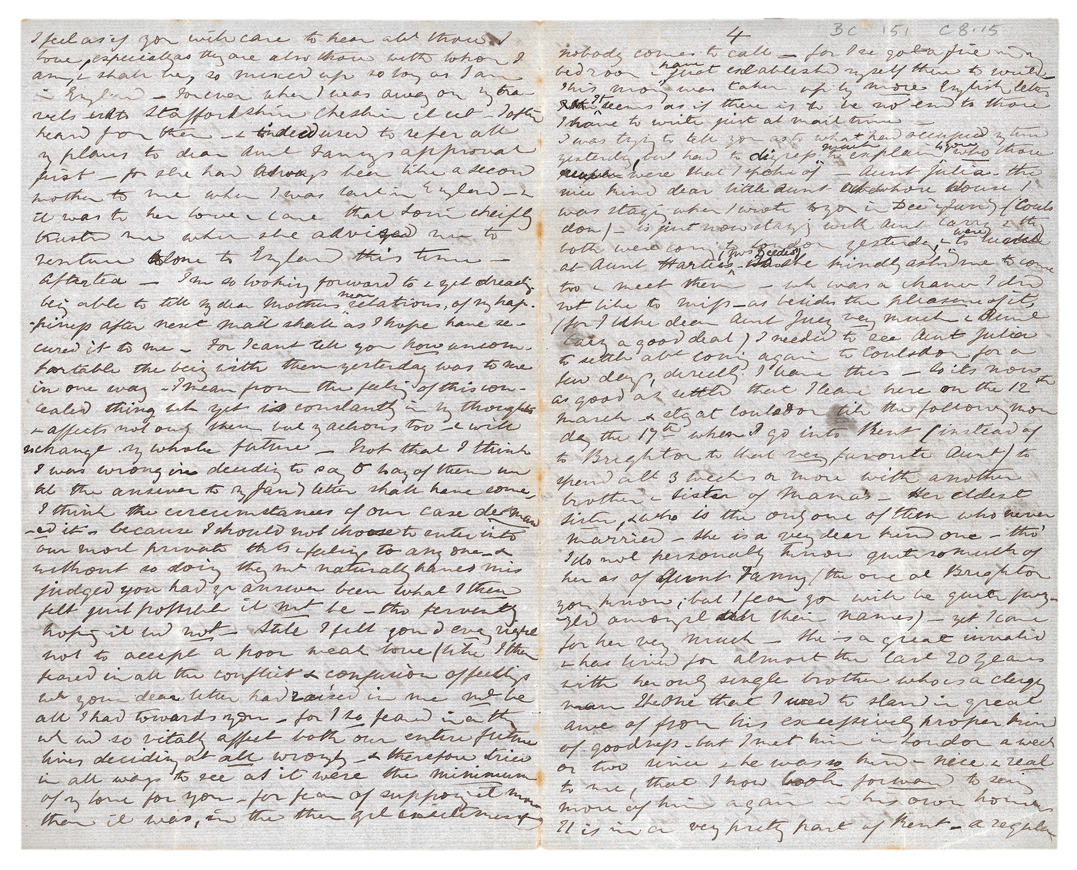 I feel as if you will care to hear abt those I
love, especially as they are also those with whom I
am, & shall be, so mixed up so long as I am
in England – However when I was away on my tra-
vels into Staffordshire Cheshire I often
heard from them – & indeed used to refer all
my plans to dear Aunt Fanny's approval
first – for she had always been like a second
mother to me when I was last in England –
it was to her love & care that cheifly
trusted me when she advised me to
venture alone to England this time –
I'm so looking forward to & yet already
being able to tell my dear Mother's near relations, of my hap-
piness after next mail shall as I hope have se-
cured it to me – For I cant tell you how uncom-
fortable the being with them yesterday was to me
in one way – I mean from the feeling of this con-
cealed thing wh yet is so constantly in my thoughts
& affects not only them but my actions too & will
change my whole future – Not that I think
I was wrong in deciding to say to any of them
till the answer to my Jany letter shall have come
I think the circumstances of our case deman
-ed it – because I should not choose to enter into
our most private thts & feelings to any one – &
without so doing they mt naturally have mis
judged you had yr answer been what I then
felt just possible it mt be – tho' fervently
hoping it wd not – Still I felt you'd every right
not to accept a poor weak love (like I then
feared in all the conflict & confusion of feelings
wh your dear letter had raised in me mt be
all I had towards you – for I so feared in a thing
wh wd so vitally affect both our entire future
lives deciding at all wrongly – & therefore tried
in all ways to see as it were the minimum
of my love for you – for fear of supposing it more
than it was, in the then
4
BC 151 C8.15
nobody comes to call – for I've got a fire in my
bedroom & have just established myself there to write
This morng was taken up by more English letters
It seems as if there is to be no end to those
I have to write just at mail time –
I was trying to tell you as to what had occupied my time
yesterday, but had to digress to explain to you who those
were that I spoke of – Aunt Julia – the
nice kind dear little Aunt at whose house I
was staying when I wrote to you in Decr & Jany (Couls
don) – is just now staying with Aunt & they
both were coming to London yesterday & were to
at Aunt Harties – & she kindly asked me to come
too & meet them – wh was a chance I did
not like to miss – as besides the pleasure of it,
(for I like dear Aunt Lucy very much & Aunt
a good deal) I needed to see Aunt Julia
to settle abt coming again to Coulsdon for a
few days, directly I leave this – So its now
as good as settled that I leave here on the 12th
March & stay at Coulsdon till the following Mon
day the 17th when I go into Kent (instead of
to Brighton to that very favorite Aunt) to
spend abt 3 weeks or more with another
brother & sister of Mama's – Her eldest
sister, & who is the only one of them who never
married – She is a very dear kind one – tho'
I do not personally know quite so much of
her as of Aunt Fanny (the one at Brighton
you know, but I fear you will be quite puz-
zled amongst all their names) – yet I care
for her very much – She is a great invalid
& has lived for almost the last 20 years
with her only single brother who is a clergy
man The one that I used to stand in great
awe of from his excessively proper kind
of goodness – but I met him in London a week
or two since & he was so kind – nice & real
to me, that I now look forward to seeing
more of him again in his own home
It is in a very pretty part of Kent – a regular